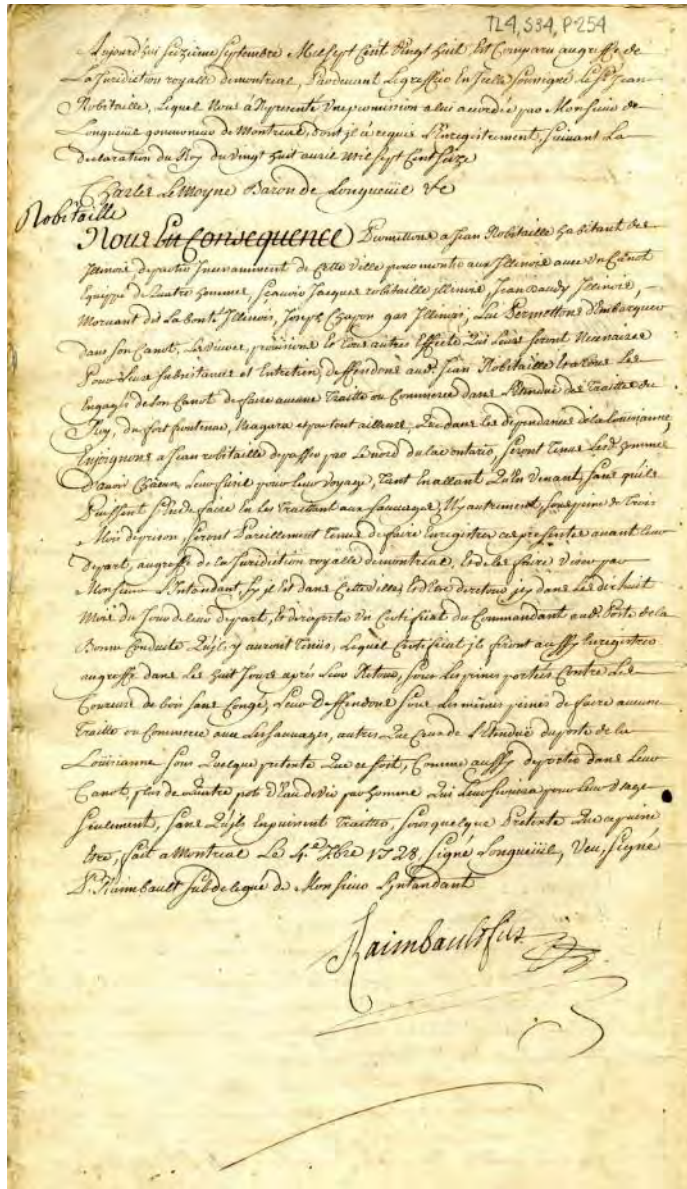 TL4, S34, P254
Aujourd'huy seizieme Septembre Mil sept Cent Vingt huit Est Comparu au greffe de
La Jurediction royalle de montreal, Pardevant Le greffier En Icelle soussigné le Sr Jean
Robitaille, Lequel Nous à Represente Une permission a lui accordée par Monsieur de
Longueuil gouverneur de Montreal, dont jl à requis L'Enregistrement, suivant La
declaration du Roy du Vingt huit avril mil sept Cent seize
Charles LeMoyne Baron de Longueüil &c
Robitaille
Nous En Consequence Permettons a Jean Robitaille habitant des
Jllinois, de partir Incessamment de Cette Ville pour monter aux Jllinois avec Un Canot
Equippé de Quatre hommes, sçavoir Jacques robitaille jllinois, Jean Jllinois,
Morvant dit La bonté Jllinois, Joseph Chagon gas Jllinois, Lui Permettons d'Embarquer
dans son Canot, Les Vivres, provisions et tous autres Effects Qui Leurs seront Necessaires
Pour Leur subsistance et Entretien, deffendons aud. Jean Robitaille et a tous Les
Engagés de son Canot de faire aucune Traitte ou Commerce dans L'Etendüe des Traittes du
Roy, du fort frontenac, Niagara et partout ailleurs, Que dans les dependances de la Louisianne,
Enjoignons a Jean robitaille de passer par Le nord du lac ontario, seront Tenus Lesd. hommes
d'avoir Chacun Leur fusil pour Leur Voyage, Tant En allant Qu'En Venant, sans qu'ils
Puissent s'En defaire En les Traittant aux sauvages, Ny autrement, sous peine de Trois
Mois de prison, seront Pareillement Tenus de faire Enregistrer ces presentes avant Leur
depart, au greffe de la Jurediction royalle de montreal, et de les faire Viser par
Monsieur L'Intendant, sy jl Est dans Cette Ville, et d'Etre de retour jcy dans Les dix huit
Mois du Jour de Leur depart, et de raporter Un Certificat du Commandant aud. Poste de la
Bonne Conduite Qu'jls y auront Tenüe, Lequel Certificat jls feront aussy Enregistrer
au greffe dans Les huit Jours aprés Leur Retour, sous Les peines portées Contre Les
Coureurs de bois sans Congé, Leur Deffendons sous Les mêmes peines de faire aucune
Traitte ou Commerce avec Les sauvages, autres Que Ceux de L'Etendüe du poste de la
Loüisianne sous Quelque pretexte Que ce soit, Comme aussy de porter dans Leur
Canot, plus de Quatre pots d'Eau de Vie par homme Qui Leur servira pour Leur Usage
seulement, sans Qu'jls En puissent Traitter, sous quelque Pretexte Que ce puisse
Etre, fait a Montreal Le 4e 7bre 1728, signé Longueüil, Veu, signé
P. Raimbault subdelegué de Monsieur L'Intandant
Raimbault fils